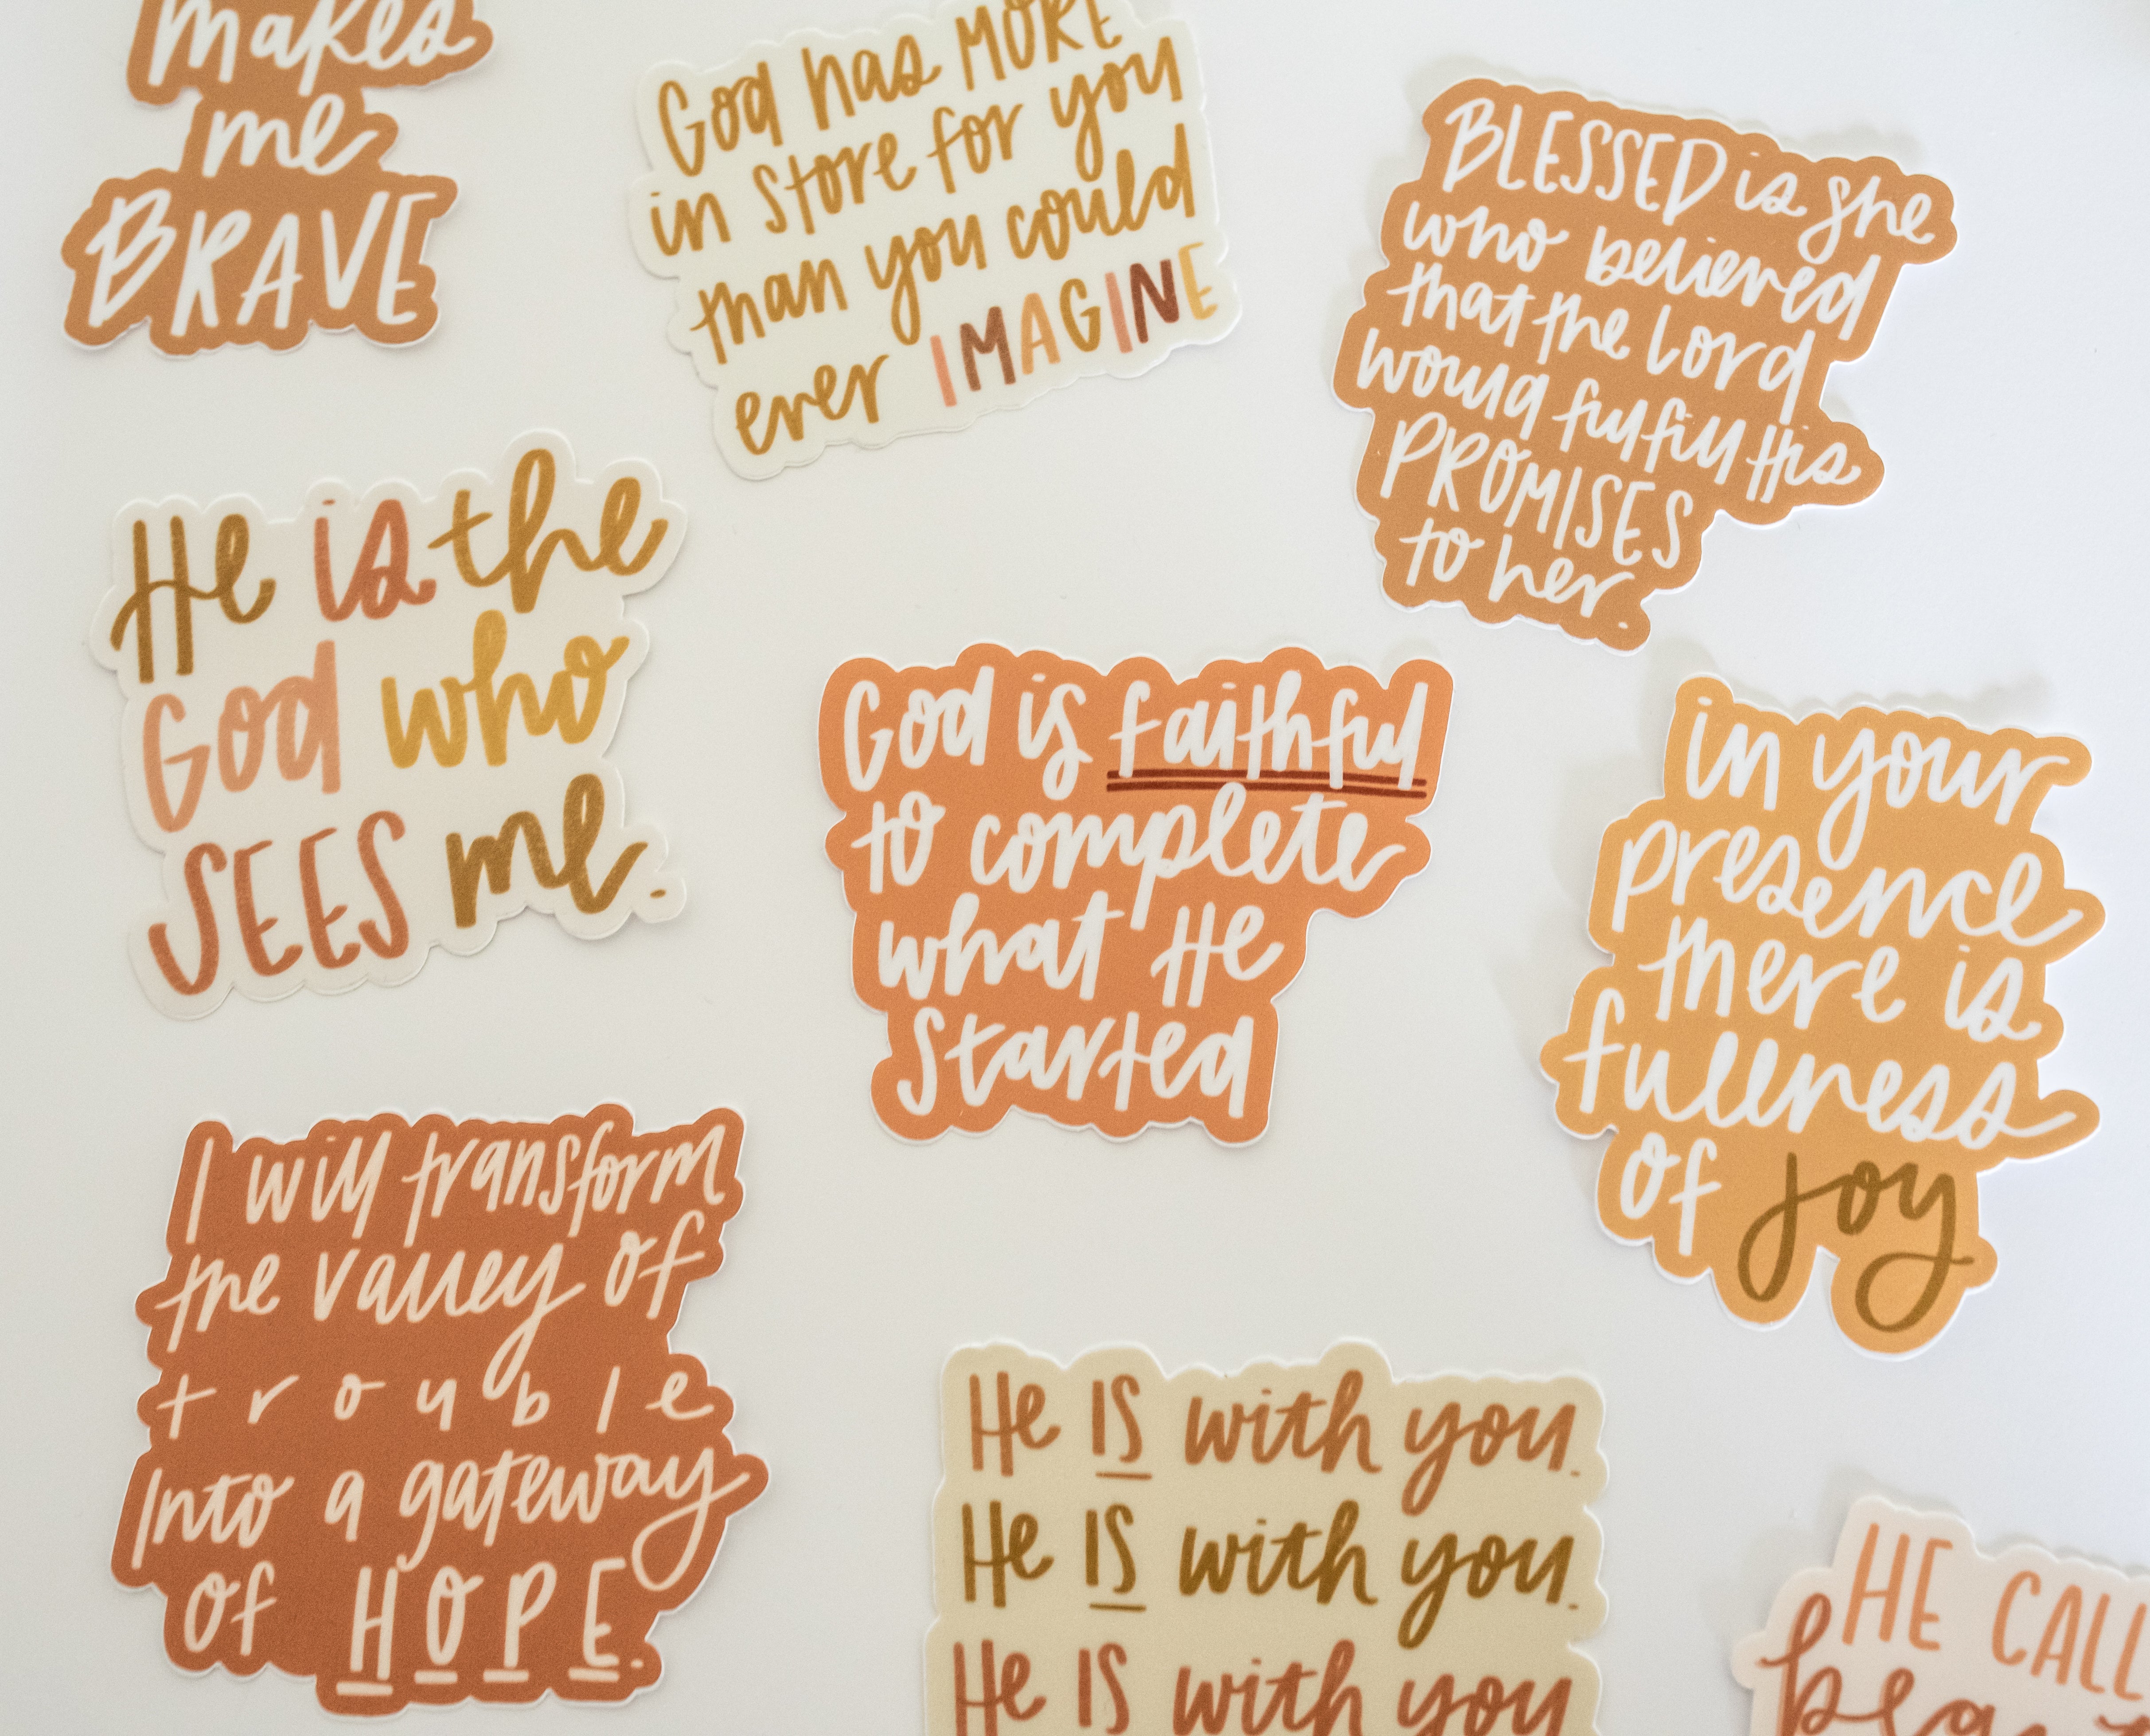 makes
me
BRAVE
God has MORE
in store for you
than you could
ever IMAGINE
BLESSED is she
who believed
that the Lord
would fulfill His
PROMISES
to her.
He is the
God who
SEES me.
God is faithful
to complete
what He
started
in your
presence
there is
fullness
of joy
I will transform
the valley of
trouble
into a gateway
of HOPE.
He IS with you.
He IS with you.
He IS with you
HE CALL